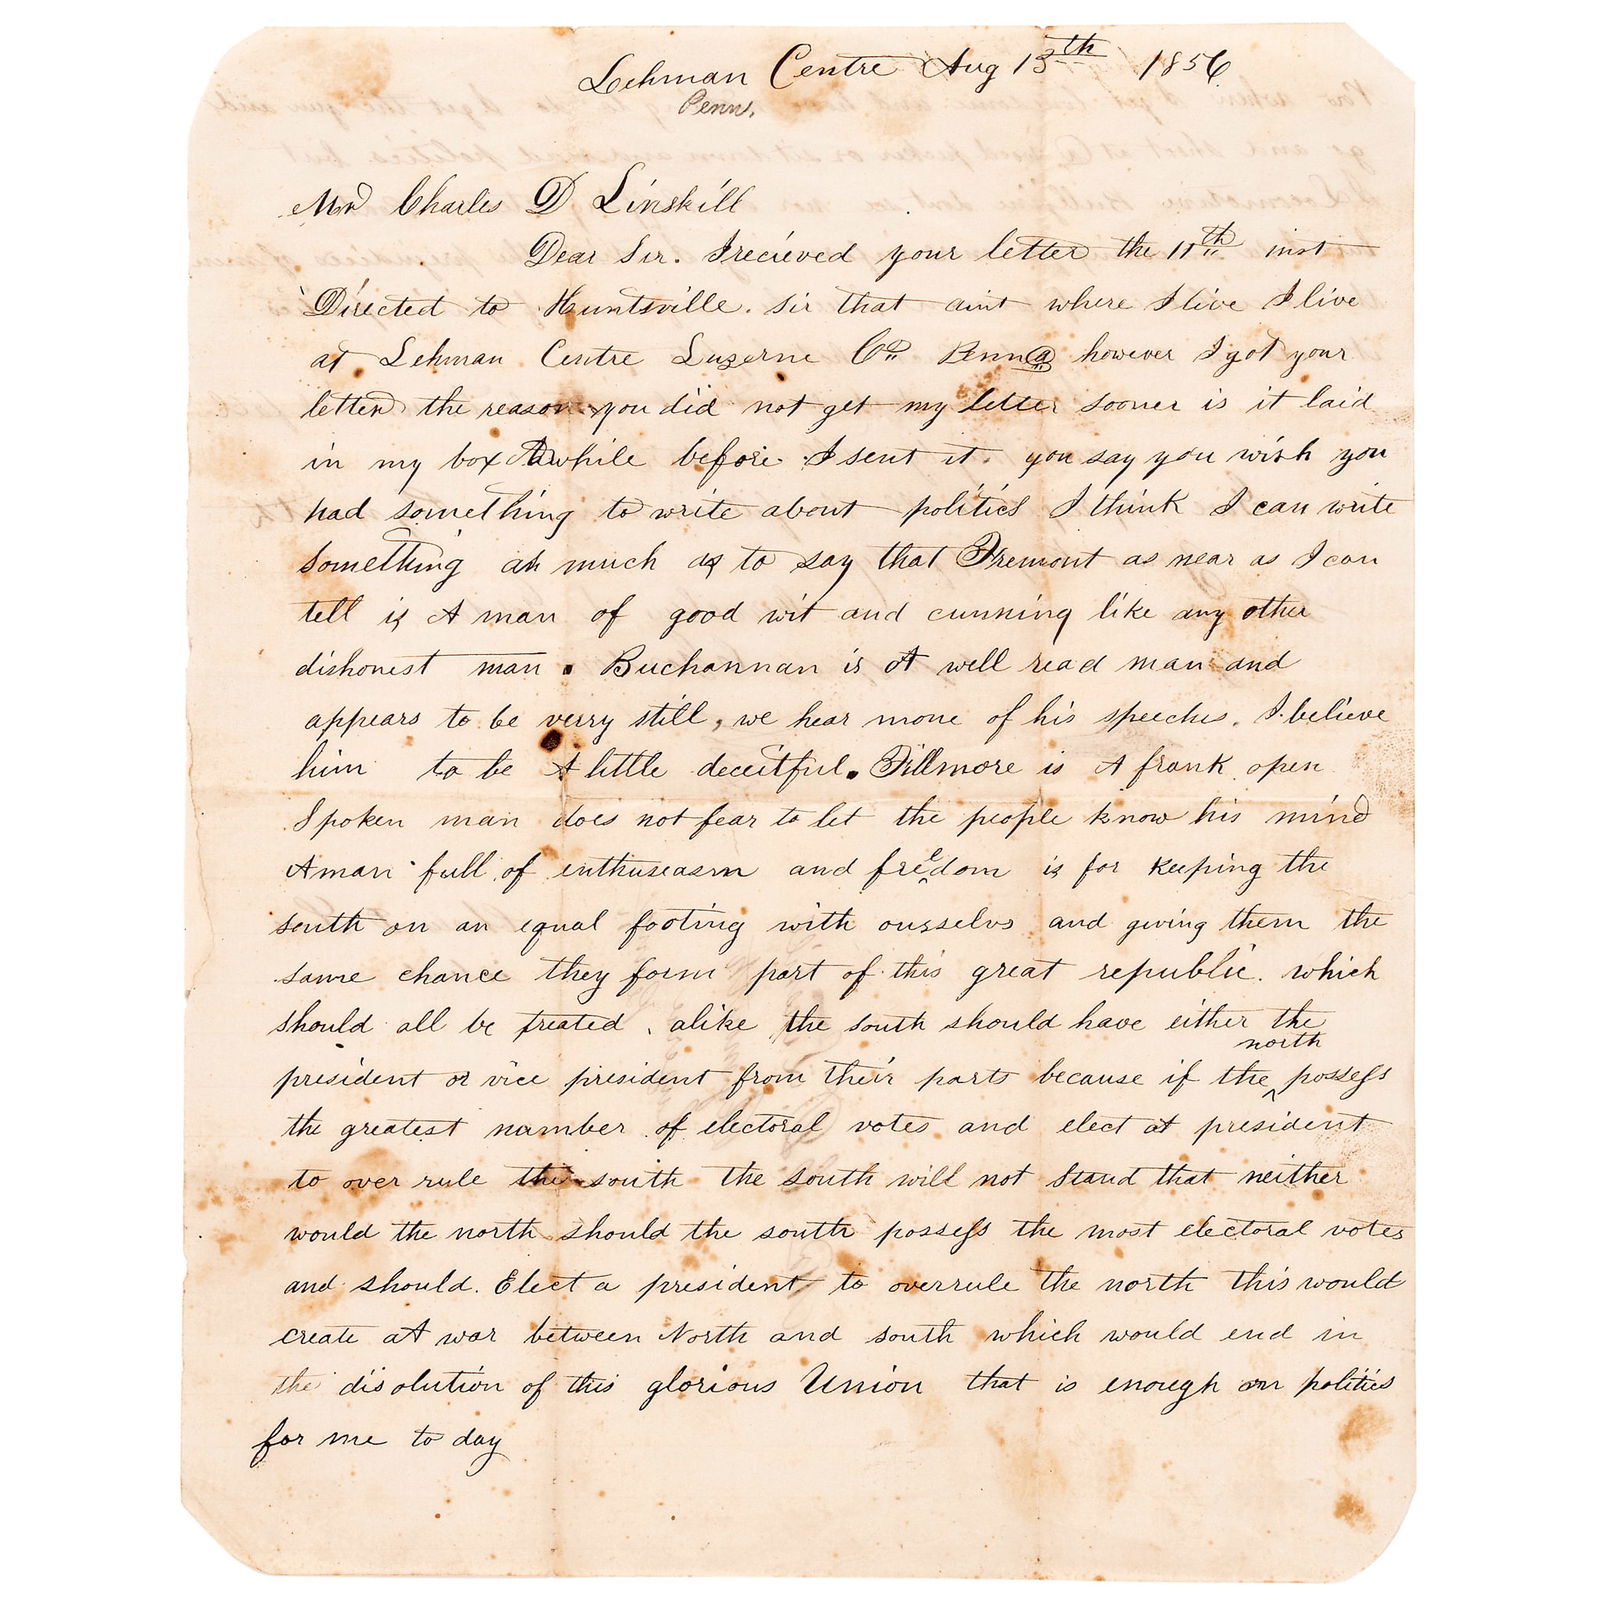 Lehman Centre Aug 13th 1856
Penn.
Mr Charles D Linskill
Dear Sir. I recieved your letter the 11th inst
Directed to Huntsville. sir that aint where I live I live
at Lehman Centre Luzerne Co Penna however I got your
letter the reason you did not get my letter sooner is it laid
in my box Awhile before I sent it. you say you wish you
had something to write about politics I think I can write
something as much as to say that Fremont as near as I can
tell is A man of good wit and cunning like any other
dishonest man. Buchannan is A well read man and
appears to be verry still, we hear none of his speeches. I believe
him to be A little deceitful. Fillmore is A frank open
Spoken man does not fear to let the people know his mind
A man full of enthuseasm and freedom is for keeping the
south on an equal footing with ourselvs and giving them the
same chance they form part of this great republic. which
should all be treated alike the south should have either the
president or vice president from their parts because if the north possess
the greatest number of electoral votes and elect a president
to over rule the south the south will not stand that neither
would the north should the south possess the most electoral votes
and should. Elect a president to overrule the north this would
create A war between North and south which would end in
the disolution of this glorious Union that is enough on politics
for me to day